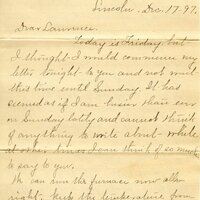 Lincoln, Dec. 17-97.
Dear Lawrence:
Today is Friday, but
I thought I would commence my
letter tonight to you and not wait
this time until Sunday. It has
seemed as if I am busier than ever
on Sunday lately and cannot think
of anything to write about while
at other times I can think of so much
to say to you.
We can run the furnace now all
right, keep the temperature from